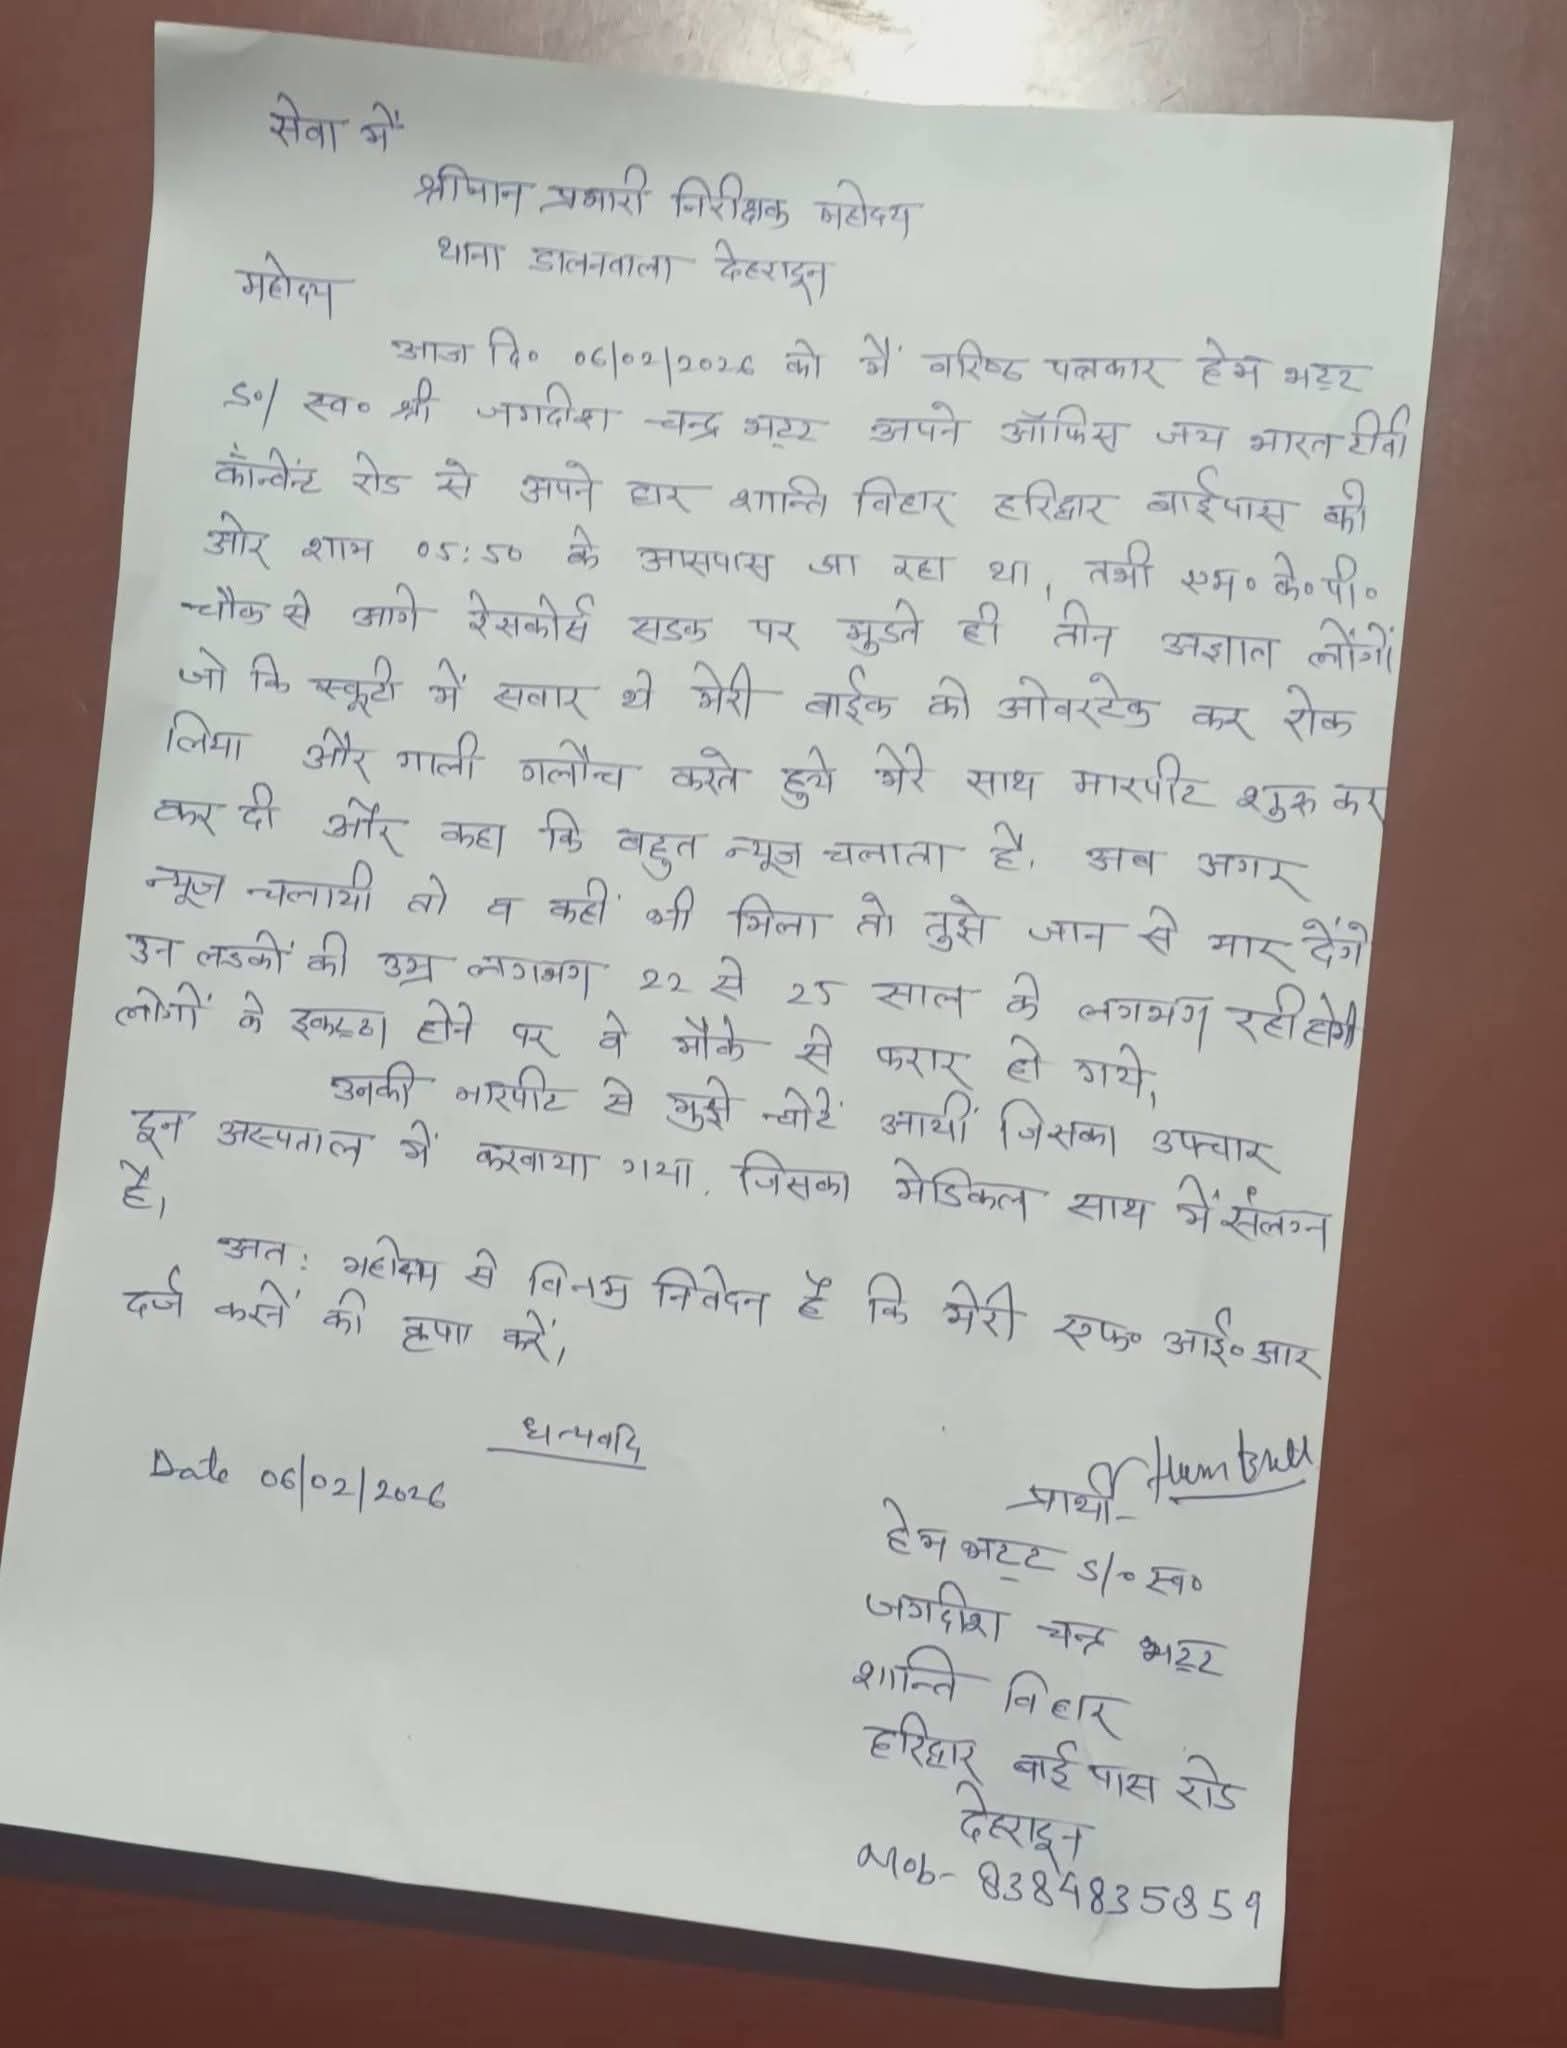 सेवा में
श्रीमान प्रभारी निरीक्षक महोदय
थाना डालनवाला देहरादून
महोदय
आज दि० 06/02/2026 को मैं वरिष्ठ पत्रकार हेम भट्ट
S०/ स्व० श्री जगदीश चन्द्र भट्ट अपने ऑफिस जय भारत टीवी
कॉन्वेंन्ट रोड से अपने घर शान्ति विहार हरिद्वार बाईपास की
ओर शाम 05:50 के आसपास जा रहा था, तभी एम० के० पी०
चौक से आगे रेसकोर्स सडक पर मुडते ही तीन अज्ञात लोंगों
जो कि स्कूटी में सवार थे मेरी बाईक को ओवरटेक कर रोक
लिया और गाली गलौच करते हुये मेरे साथ मारपीट शुरू कर
कर दी और कहा कि बहुत न्यूज चलाता है, अब अगर
न्यूज चलायी तो व कहीं भी मिला तो तुझे जान से मार देंगे
उन लडकों की उम्र लगभग 22 से 25 साल के लगभग रही होगी
लोगों के इकट्ठा होने पर वे मौके से फरार हो गये,
उनकी मारपीट से मुझे चोटें आयीं जिसका उपचार
दून अस्पताल में करवाया गया, जिसका मेडिकल साथ में संलग्न
है,
अत: महोदय से विनम्र निवेदन है कि मेरी एफ० आई० आर
दर्ज करनें की कृपा करें,
धन्यवाद
Date 06/02/2026
Hem Bhatt
प्रार्थी-
हेम भट्ट S/० स्व०
जगदीश चन्द्र भट्ट
शान्ति विहार
हरिद्वार बाई पास रोड
देहरादून
Mob- 8384835859